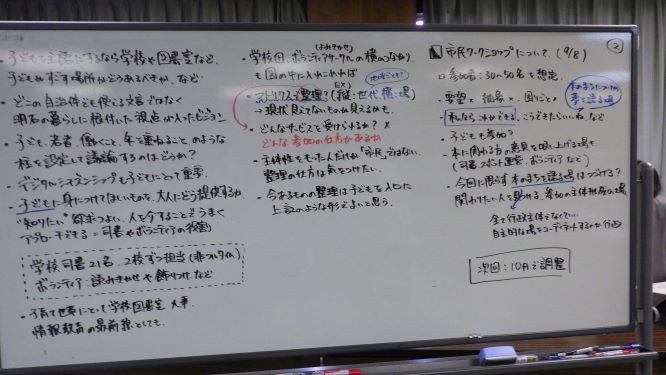 ・子どもを主語にするなら学校や図書室など、
子どもがすごす場所がどうあるべきか、など
・どこの自治体でも使える文言ではなく
明石の暮らしに根付いた視点が入ったビジョン
・子ども、若者、働くこと、年を重ねること、のような
柱を設定して議論するのはどうか?
・デジタルシチズンシップも子どもにとって重要。
・子どもに身につけてほしいものを、大人にどう提供するか
"知りたい"欲求つよい、人を介すことでうまく
アプローチできる=司書やボランティアの役割
学校司書21名、2校ずつ担当(非フルタイム)
ボランティア:読みきかせや飾りつけなど
・子育て世帯にとって学校図書室大事
情報教育の最前線としても。
学校図、ボランティアサークルの横のつながり
(よみきかせ)
も図の中に入れられれば
・マトリクスで整理?(縦:世代 横:場)
EX)
地域ごとも?
→現状見えてないものが見えるかも
・どんなサービスを受けられるか? ×
どんな参加の仕方があるか
・主体性をもった人だけが「市民」ではない、
整理の仕方は気をつけたい。
・今あるものの整理は子どもを入口に
上記のような形でよいと思う。
市民ワークショップについて、(9/8)
②
□参加者:30〜50名を想定。
・要望× 抽象× 困りごと
本のまちについて
夢を語る場
私ならこれができる、こうできたらいいね、など
・子どもも参加?
・本に関わる方の意見を吸い上げる場も、
(司書、スポット運営、ボランティアなど)
・今回に限らず本のまちを語る場はつづける?
関わりたい人を見つける、参加の主体形成の場
全て行政主体でなくていい
自主的な場をコーディネートするのが行政
次回:10月で調整